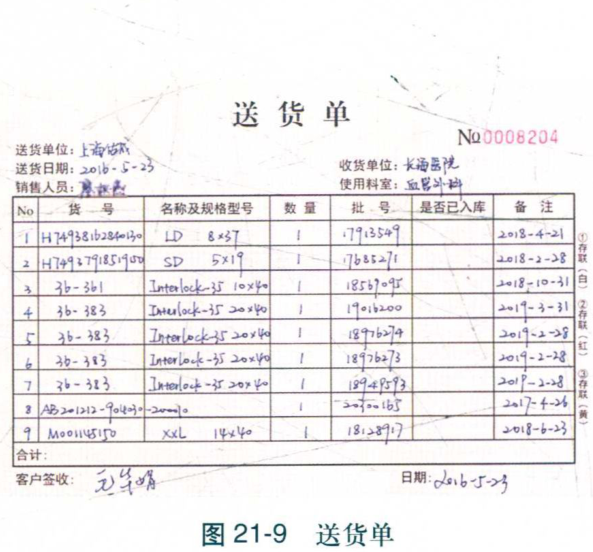 送货单
№0008204
送货单位：上海
送货日期：2016-5-23 收货单位：长海医院
销售人员： 使用科室：血管外科
No 货号 名称及规格型号 数量 批号 是否已入库 备注
1 H74938162840130 LD 8×37 1 17913549 2018-4-21
2 H74937918519150 SD 5×19 1 17685271 2018-2-28
3 36-361 Interlock-35 10×40 1 18567095 2018-10-31
4 36-383 Interlock-35 20×40 1 19016200 2019-3-31
5 36-383 Interlock-35 20×40 1 18976274 2019-2-28
6 36-383 Interlock-35 20×40 1 18976273 2019-2-28
7 36-383 Interlock-35 20×40 1 18949593 2019-2-28
8 AB201212-904030-200010 1 20300165 2017-4-26
9 M001145150 XXL 14×40 1 18128917 2018-6-23
合计：
客户签收： 日期：2016-5-23
①存联（白）
②存联（红）
③存联（黄）
图 21-9 送货单